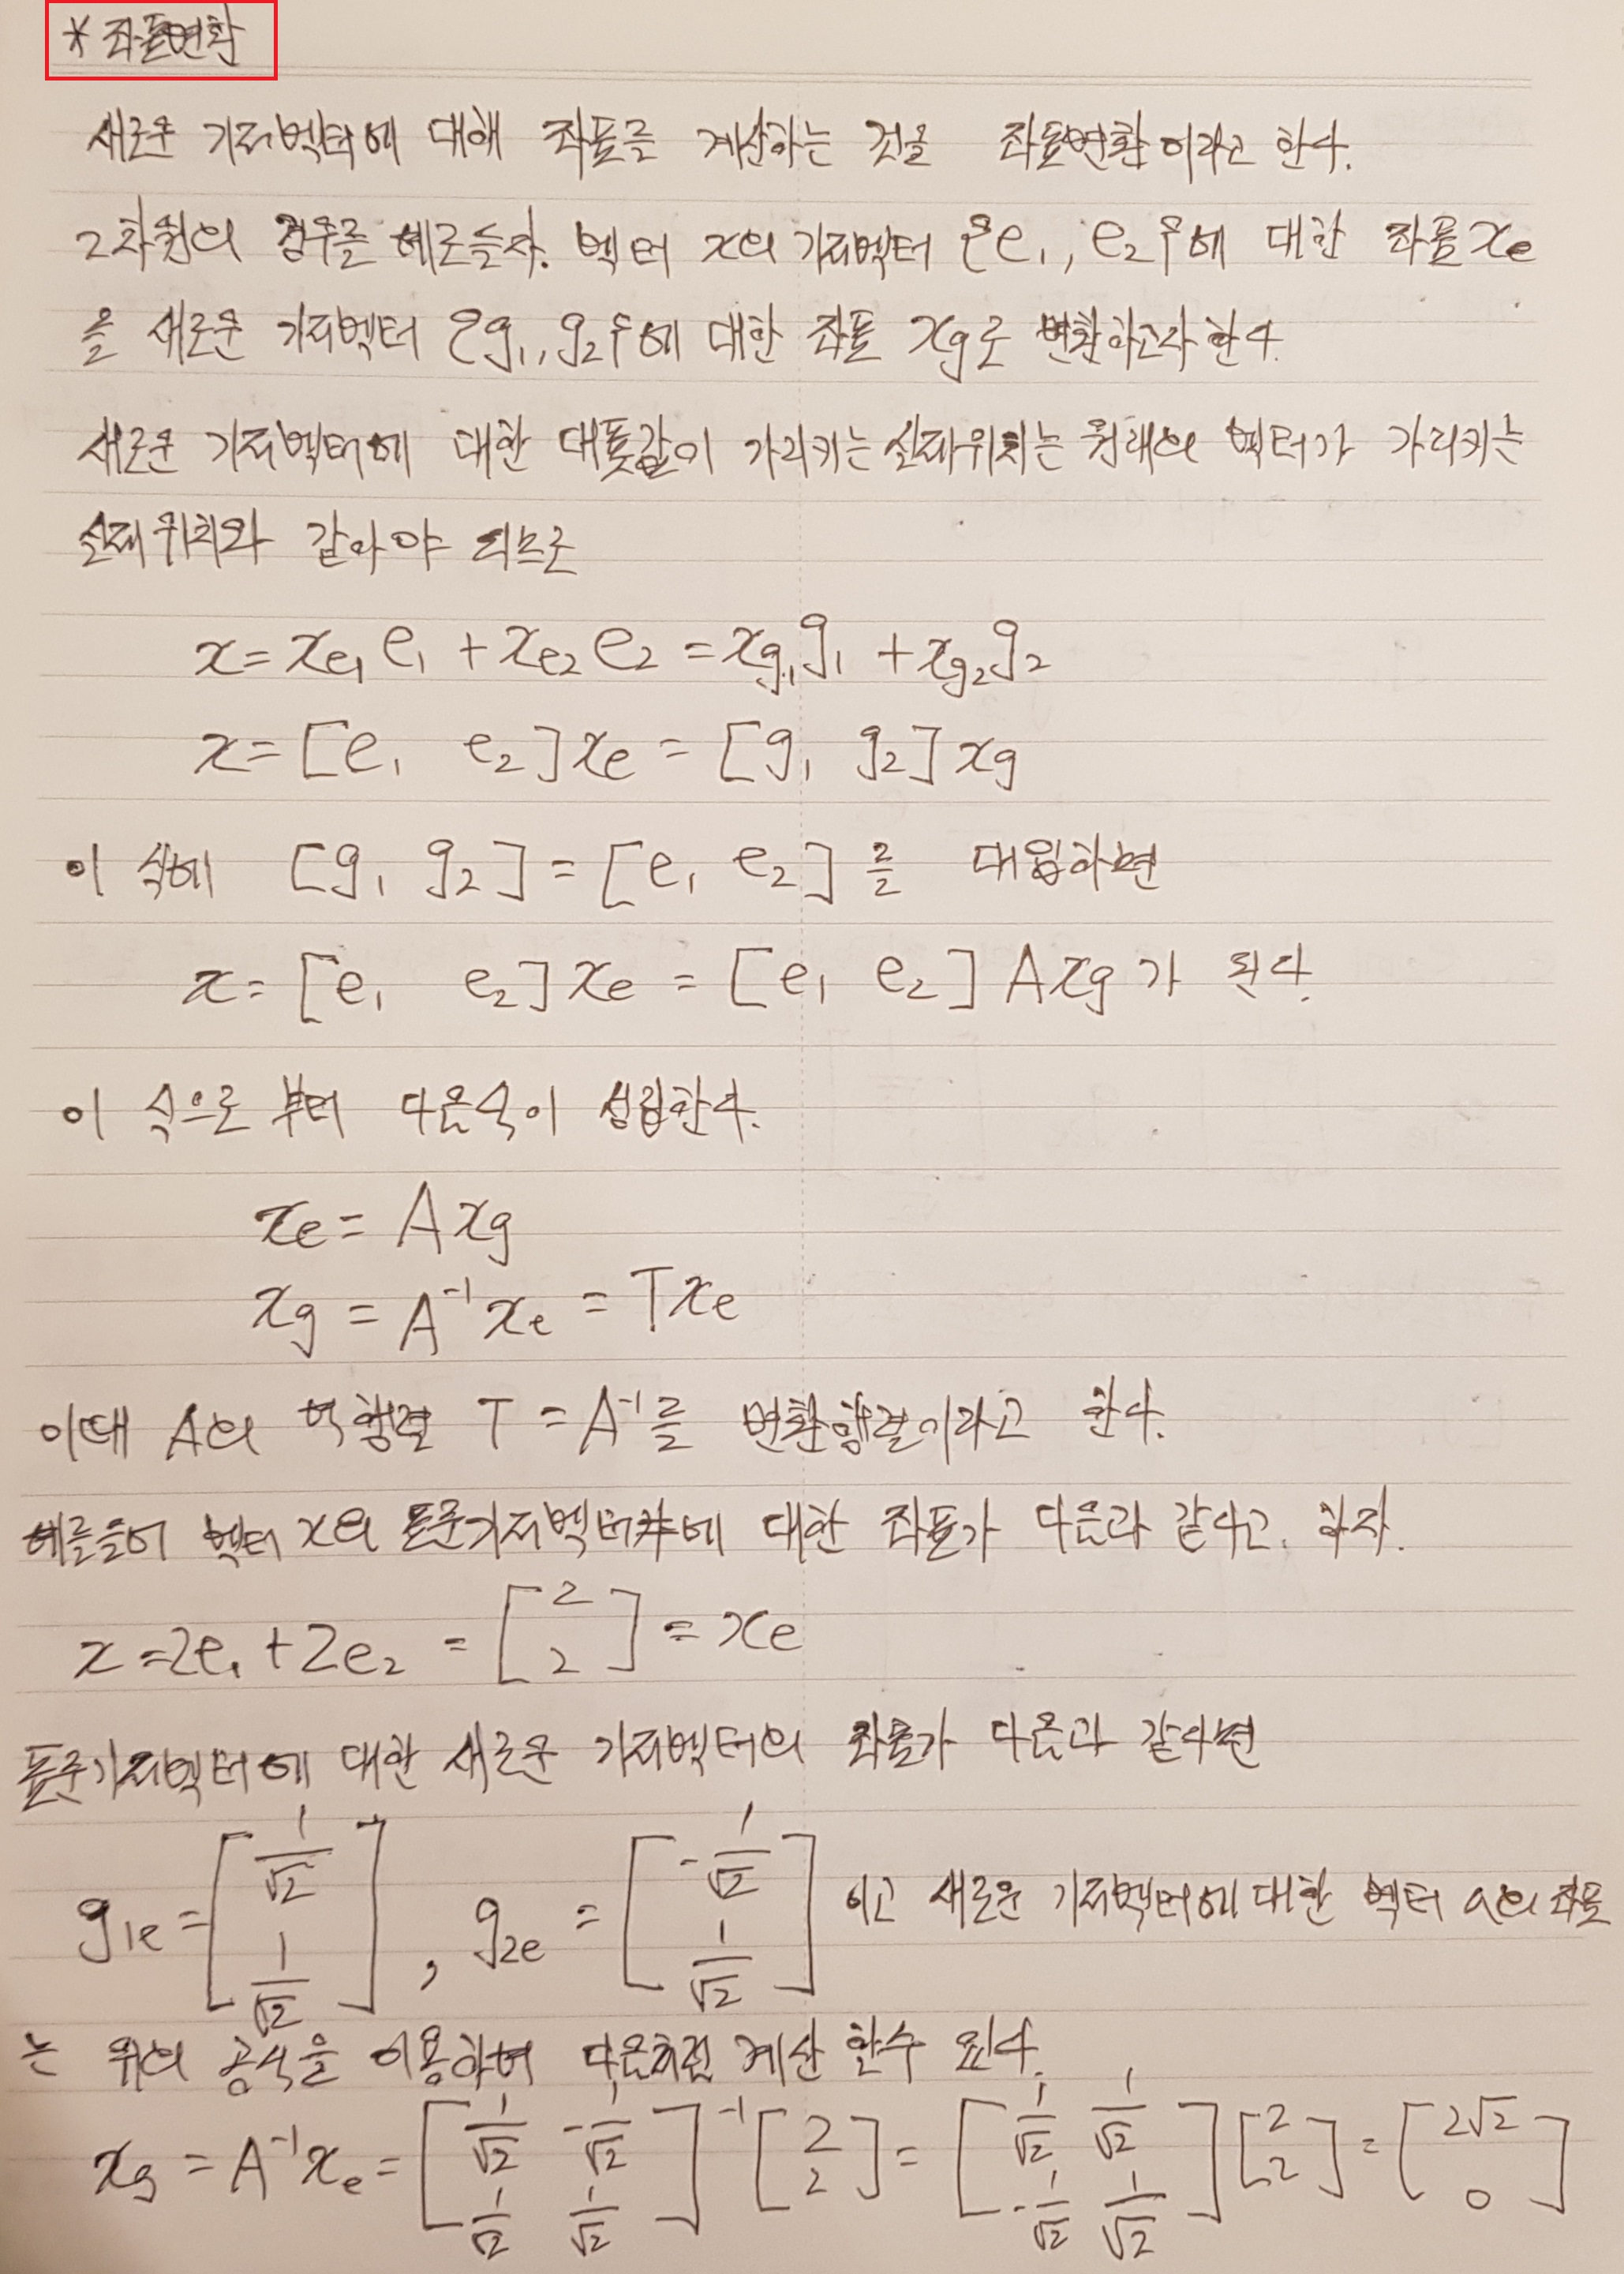 * 좌표변환
새로운 기저벡터에 대해 좌표를 계산하는 것을 좌표변환이라고 한다.
2차원의 경우를 예로들자. 벡터 x의 기저벡터 {e₁, e₂}에 대한 좌표 xe
을 새로운 기저벡터 {g₁, g₂}에 대한 좌표 xg로 변환하고자한다.
새로운 기저벡터에 대한 가리키는 실제위치는 원래의 벡터가 가리키는
실제위치와 같아야 되므로
x = xe₁e₁ + xe₂e₂ = xg₁g₁ + xg₂g₂
x = [e₁ e₂]xe = [g₁ g₂]xg
이 식에 [g₁ g₂] = [e₁ e₂]를 대입하면
x = [e₁ e₂]xe = [e₁ e₂]Axg가 된다.
이 식으로 부터 다음식이 성립한다.
xe = Axg
xg = A⁻¹xe = Txe
이때 A의 역행렬 T = A⁻¹를 변환행렬이라고 한다.
예를들어 벡터 x의 표준기저벡터에 대한 좌표가 다음과 같다고 하자.
x = 2e₁ + 2e₂ = [2 2] = xe
표준기저벡터에 대한 새로운 기저벡터의 좌표가 다음과 같다면
g₁e = [1/√2 1/√2], g₂e = [-1/√2 1/√2] 이고 새로운 기저벡터에 대한 벡터 a의 좌표
는 위의 공식을 이용하여 다음처럼 계산 할수 있다.
xg = A⁻¹xe = [1/√2 -1/√2 1/√2 1/√2]⁻¹[2 2] = [1/√2 1/√2 -1/√2 1/√2][2 2] = [2√2 0]